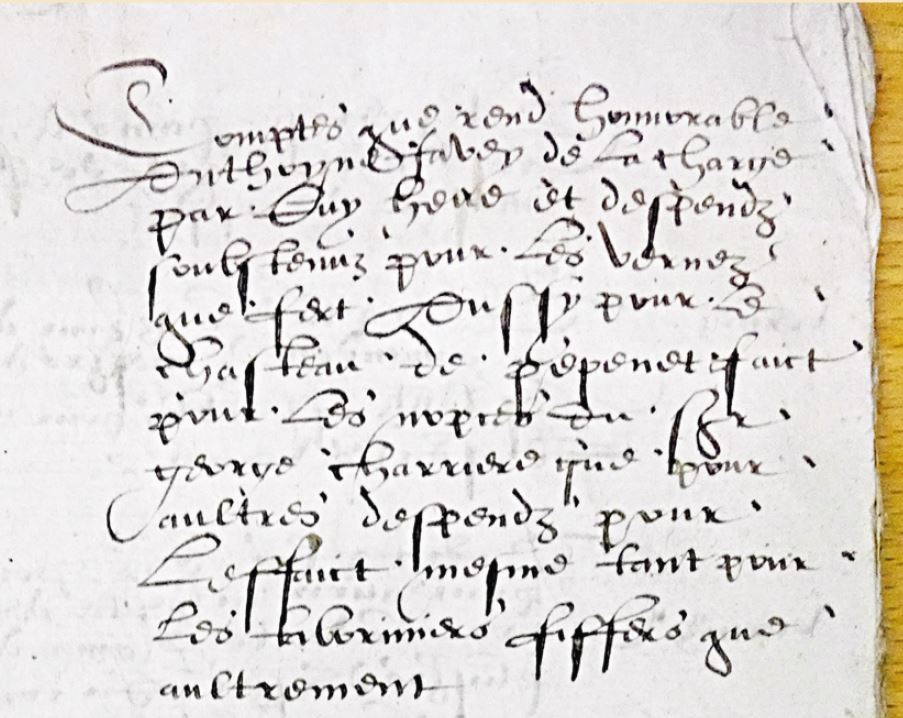 Comptes que rend honnorable
Anthoyne Favey de La charge
par Luy heue et despendz
soubstenuz pour Les vernez
que fert Aussy pour Le
chasteau de pepenet faict
pour Les nopces du Sgr
george charriere que pour
aultres despendz pour
Leffaict mesme tant pour
Les taboriniers fiffers que
aultrement